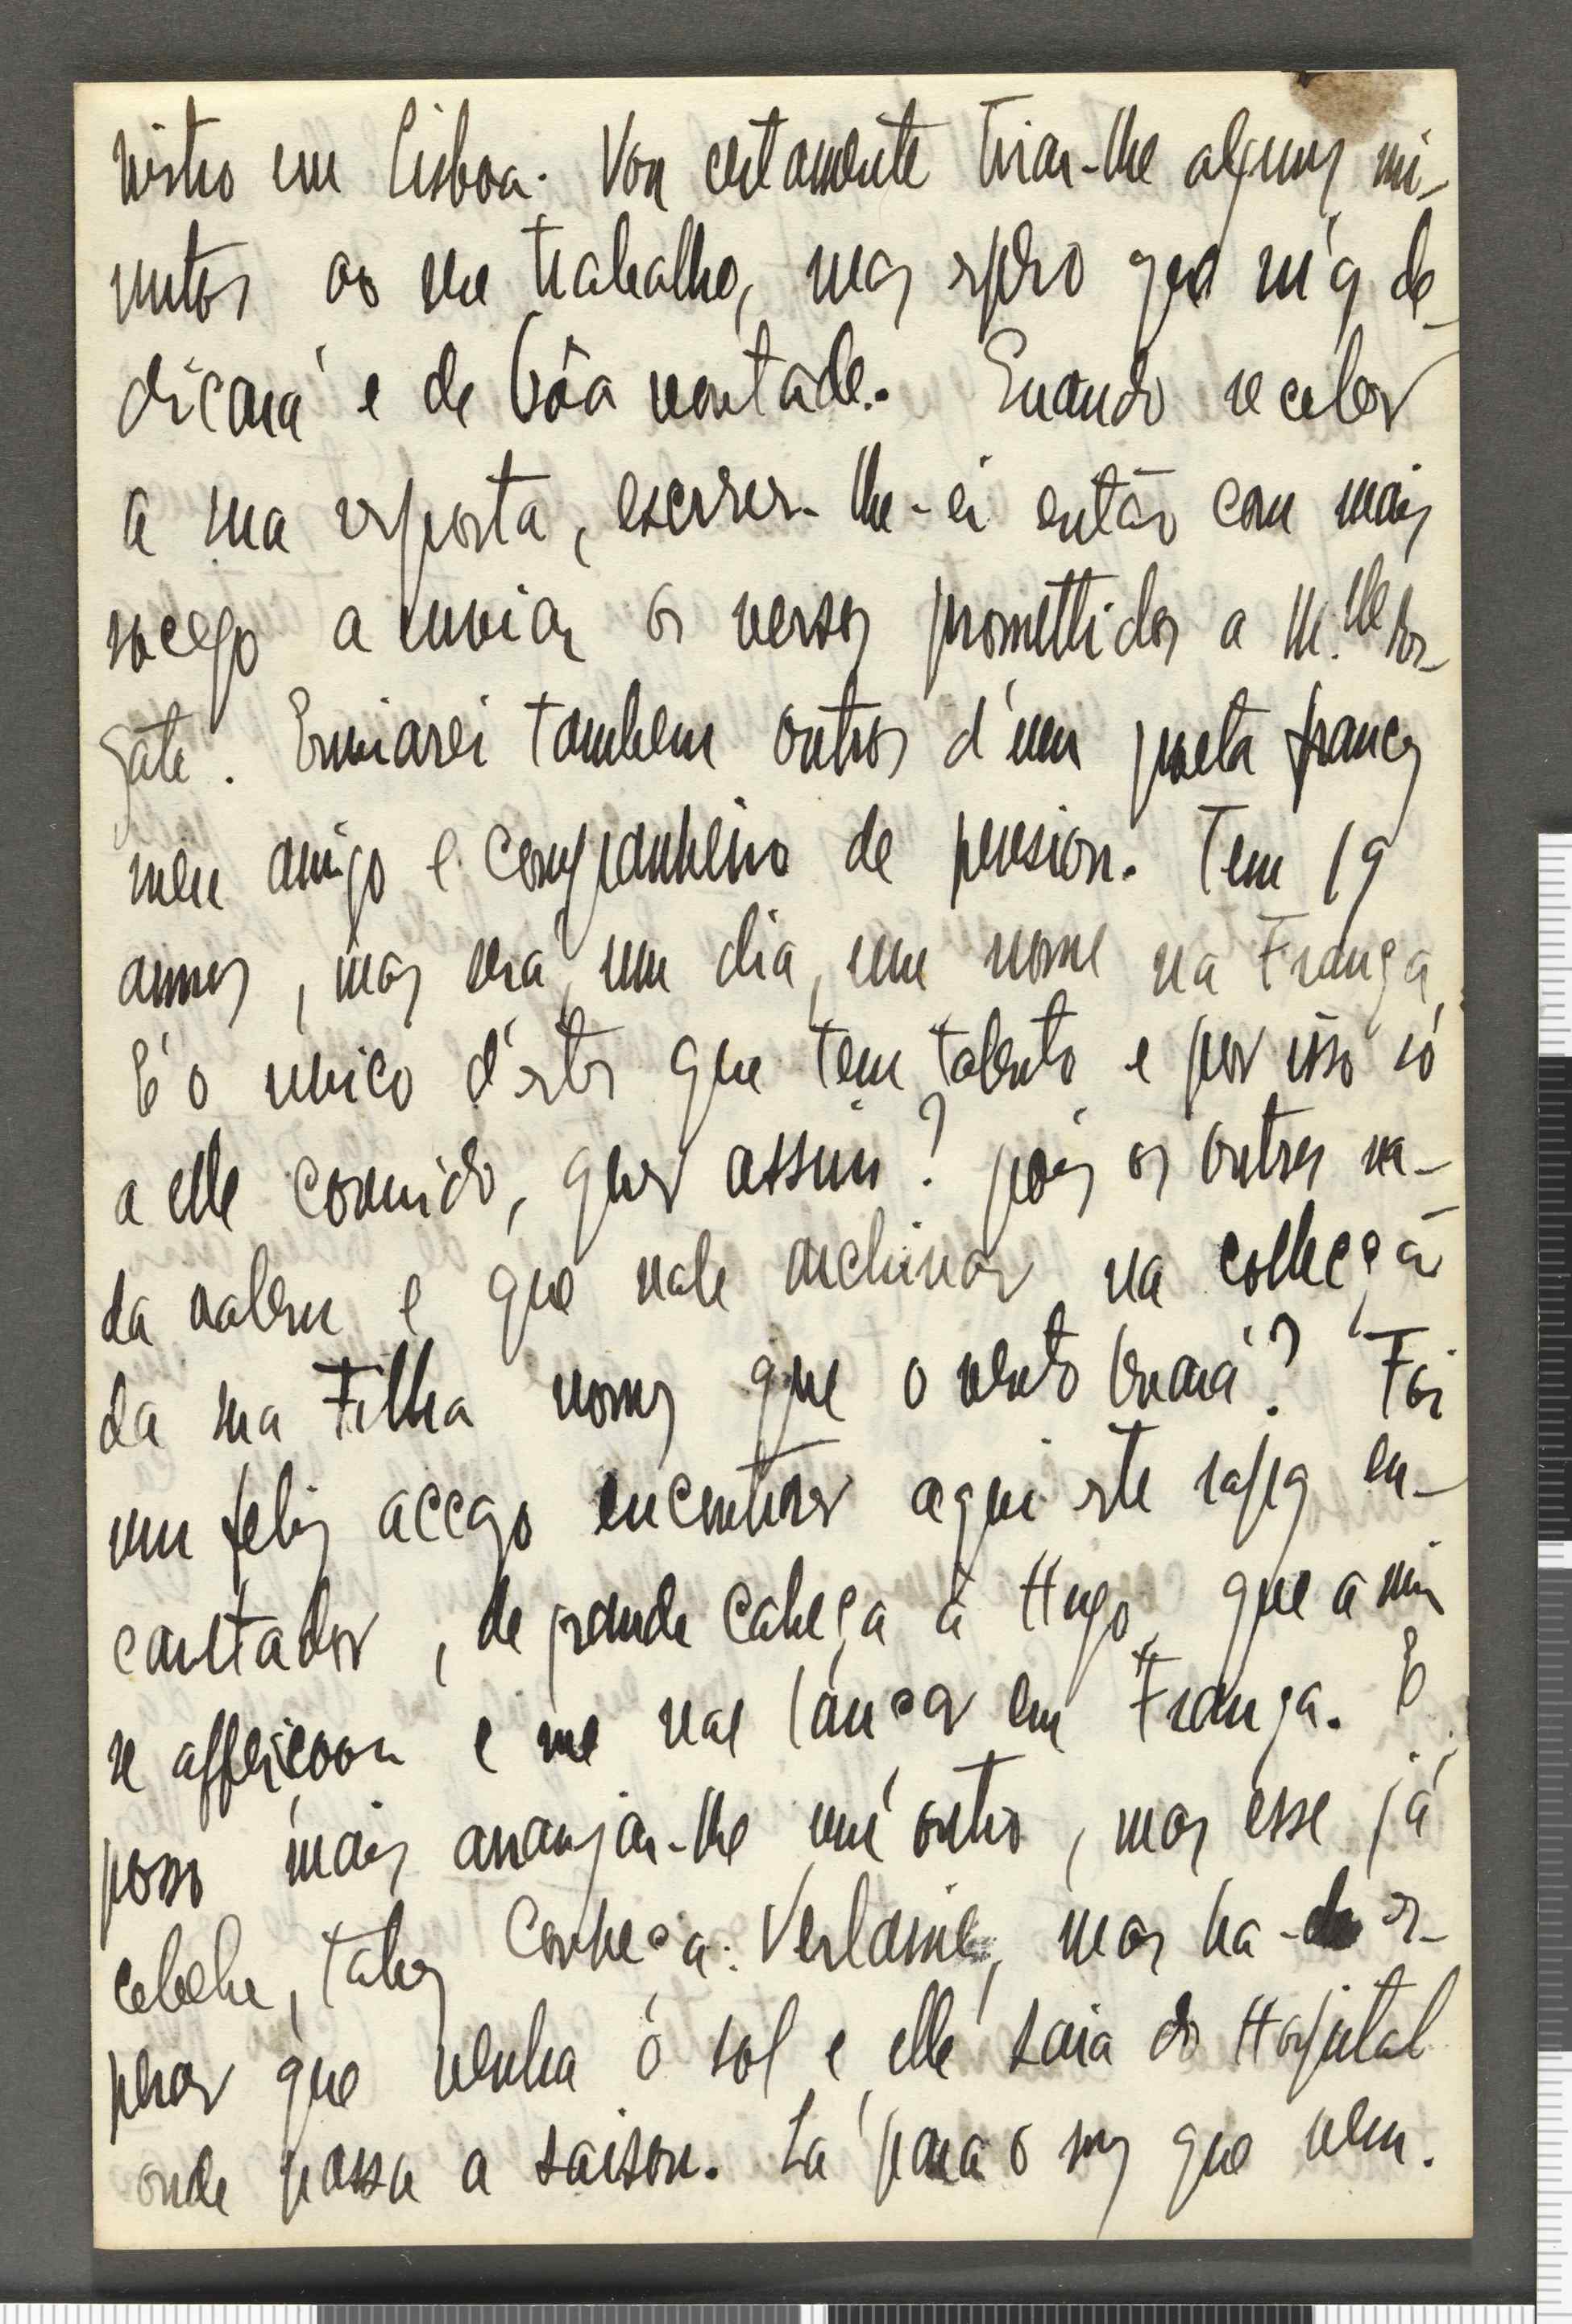 nistro em Lisboa. Vou certamente tirar-lhe alguns mi-
nutos ao seu trabalho, mas espero que m'os de-
dicará e de bôa vontade. Quando receber
a sua resposta, escrever-lhe-ei então com mais
socego a enviar os versos promettidos a M.lle
Enviarei tambem outros d'um poeta francez
meu amigo e companheiro de pension. Tem 19
annos, mas será, um dia, um nome na França,
É o unico d'estes que tem talento e por isso só
a elle convido, quer assim? pois os outros na-
da valem e que vale archivar na collecção
da sua Filha nomes que o vento levará? Foi
um feliz accaso encontrar aqui este rapaz en-
cantador, de grande cabeça à Hugo, que a mim
se affeiçoou e me vae lançar em França. E
posso mais arranjar-lhe um outro, mas esse já
celebre, talvez conheça: Verlaine, mas ha-de es-
perar que venha o sol e elle saia do Hospital
onde passa a saison. Lá para o mez que vem.